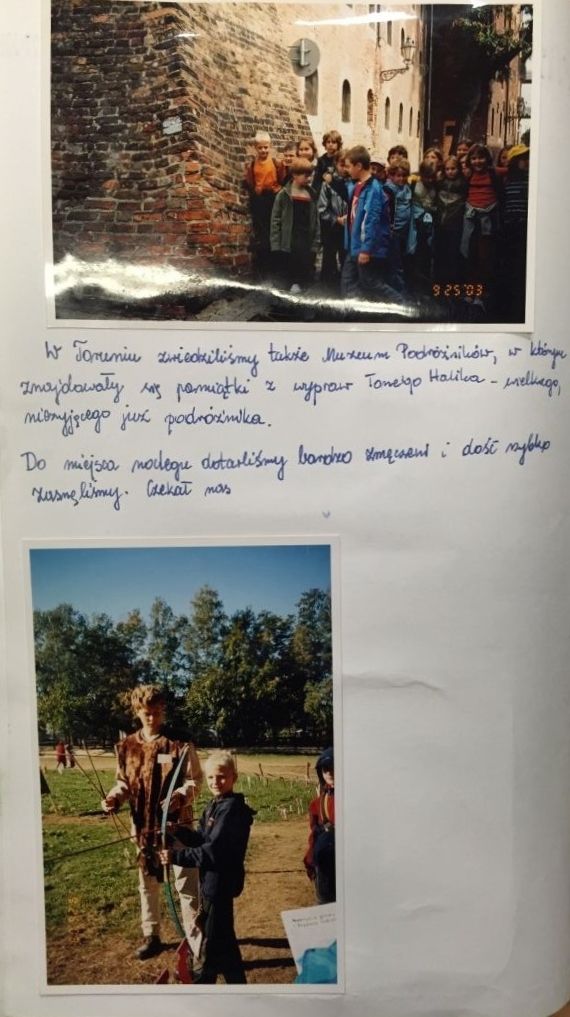 t
9 25 '03
W Toruniu zwiedziliśmy także Muzeum Podróżników, w którym
znajdowały się pamiątki z wypraw Tonego Halika – wielkiego,
nieżyjącego już podróżnika.
Do miejsca noclegu dotarliśmy bardzo zmęczeni i dość szybko
zasnęliśmy. Czekał nas